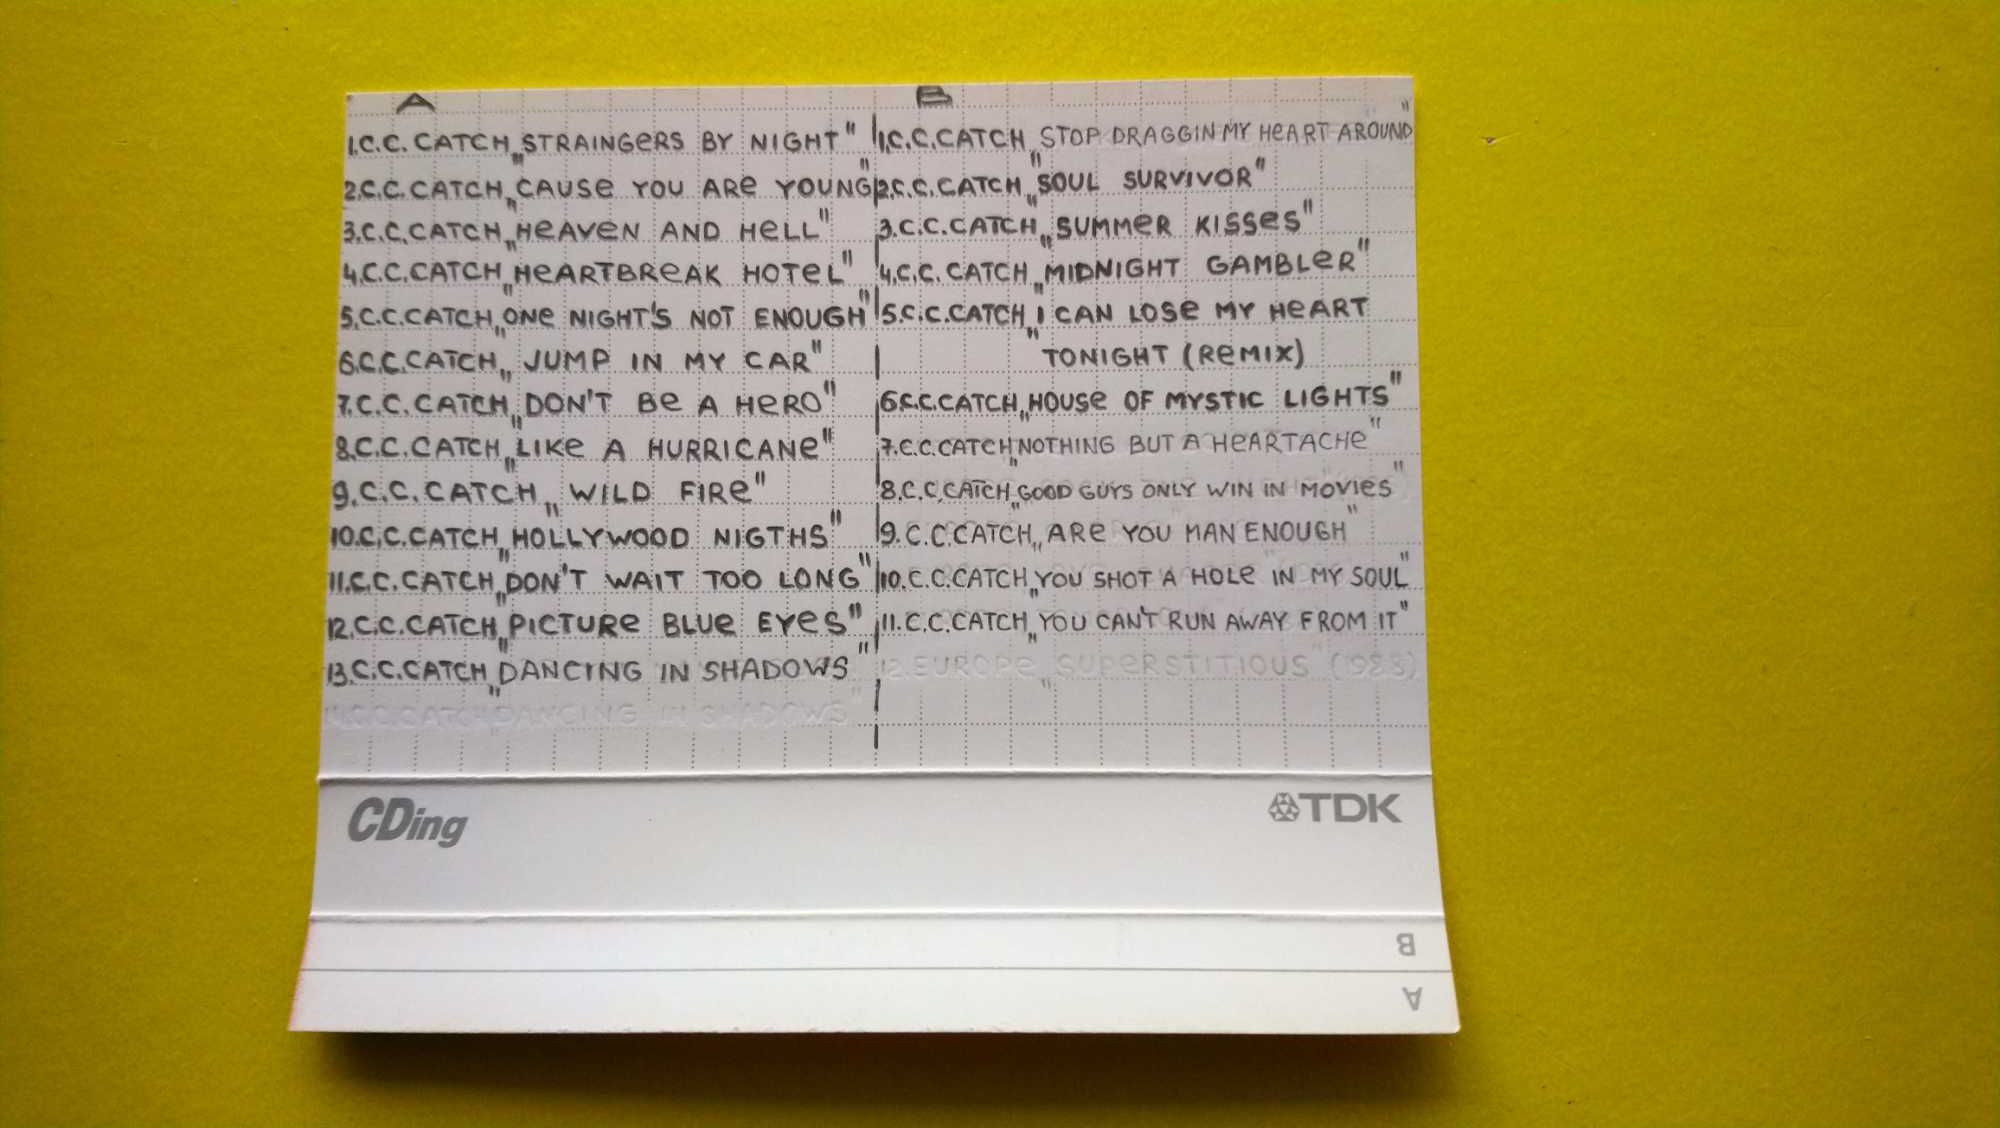 A
1.C.C. CATCH „STRAINGERS BY NIGHT"
2.C.C. CATCH „CAUSE YOU ARE YOUNG"
3.C.C. CATCH „HEAVEN AND HELL"
4.C.C. CATCH „HEARTBREAK HOTEL"
5.C.C. CATCH „ONE NIGHT'S NOT ENOUGH"
6.C.C. CATCH „JUMP IN MY CAR"
7.C.C. CATCH „DON'T BE A HERO"
8.C.C. CATCH „LIKE A HURRICANE"
9.C.C. CATCH „WILD FIRE"
10.C.C. CATCH „HOLLYWOOD NIGTHS"
11.C.C. CATCH „DON'T WAIT TOO LONG"
12.C.C. CATCH „PICTURE BLUE EYES"
13.C.C. CATCH „DANCING IN SHADOWS"
C.C. CATCH DANCING IN SHADOWS"
B
1.C.C. CATCH „STOP DRAGGIN MY HEART AROUND"
2.C.C. CATCH „SOUL SURVIVOR"
3.C.C. CATCH „SUMMER KISSES"
4.C.C. CATCH „MIDNIGHT GAMBLER"
5.C.C. CATCH „I CAN LOSE MY HEART
TONIGHT (REMIX)
6.C.C. CATCH „HOUSE OF MYSTIC LIGHTS"
7.C.C. CATCH „NOTHING BUT A HEARTACHE"
8.C.C. CATCH „GOOD GUYS ONLY WIN IN MOVIES"
9.C.C. CATCH „ARE YOU MAN ENOUGH"
10.C.C. CATCH „YOU SHOT A HOLE IN MY SOUL"
11.C.C. CATCH „YOU CAN'T RUN AWAY FROM IT"
12.EUROPE „SUPERSTITIOUS" (1988)
CDing
TDK
B
A